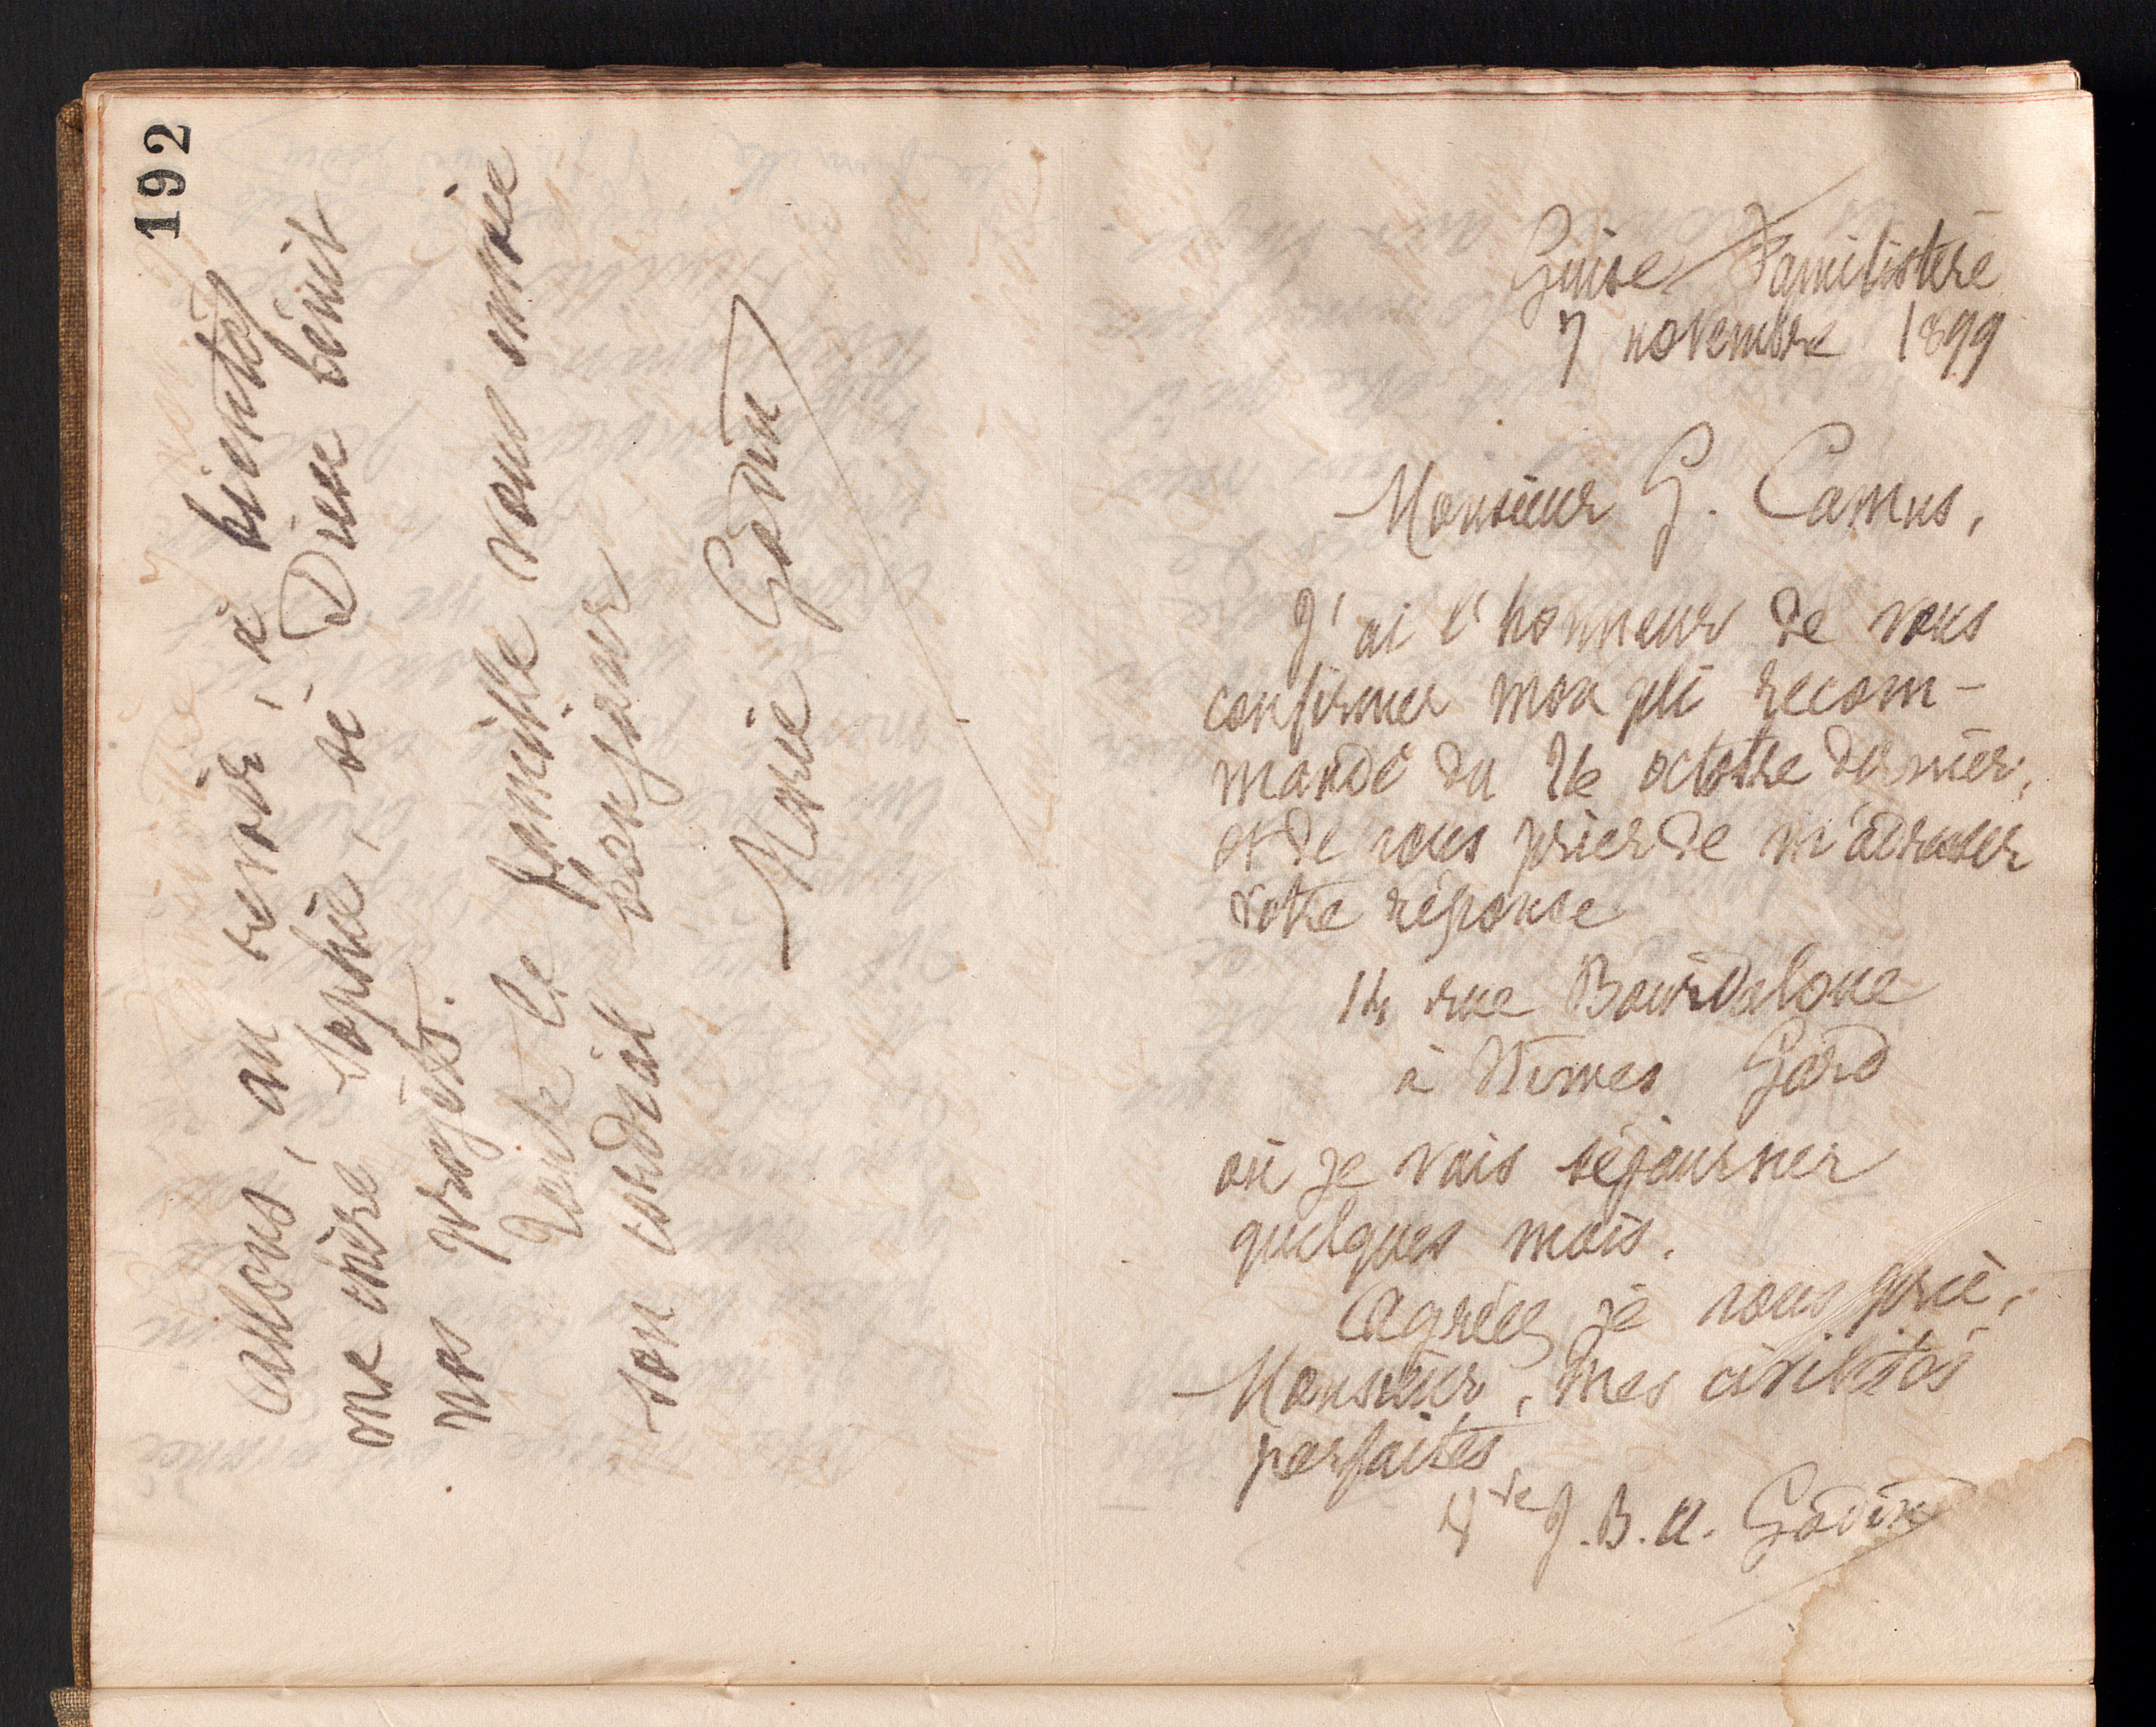 192
Allons, au revoir, à bientôt
ma chère Sophie, si Dieu bénit
nos projets.
Toute la famille vous envoie
son cordial bonjour
Marie Godin
Guise Familistère
7 novembre 1899
Monsieur G. Camus,
J'ai l'honneur de vous
confirmer mon pli recom-
mandé du 26 octobre dernier,
et de vous prier de m'adresser
votre réponse
14 rue Bourdaloue
à Nîmes Gard
où je vais séjourner
quelques mois.
Agréez, je vous prie,
Monsieur, mes civilités
parfaites
Vve J. B. A. Godin